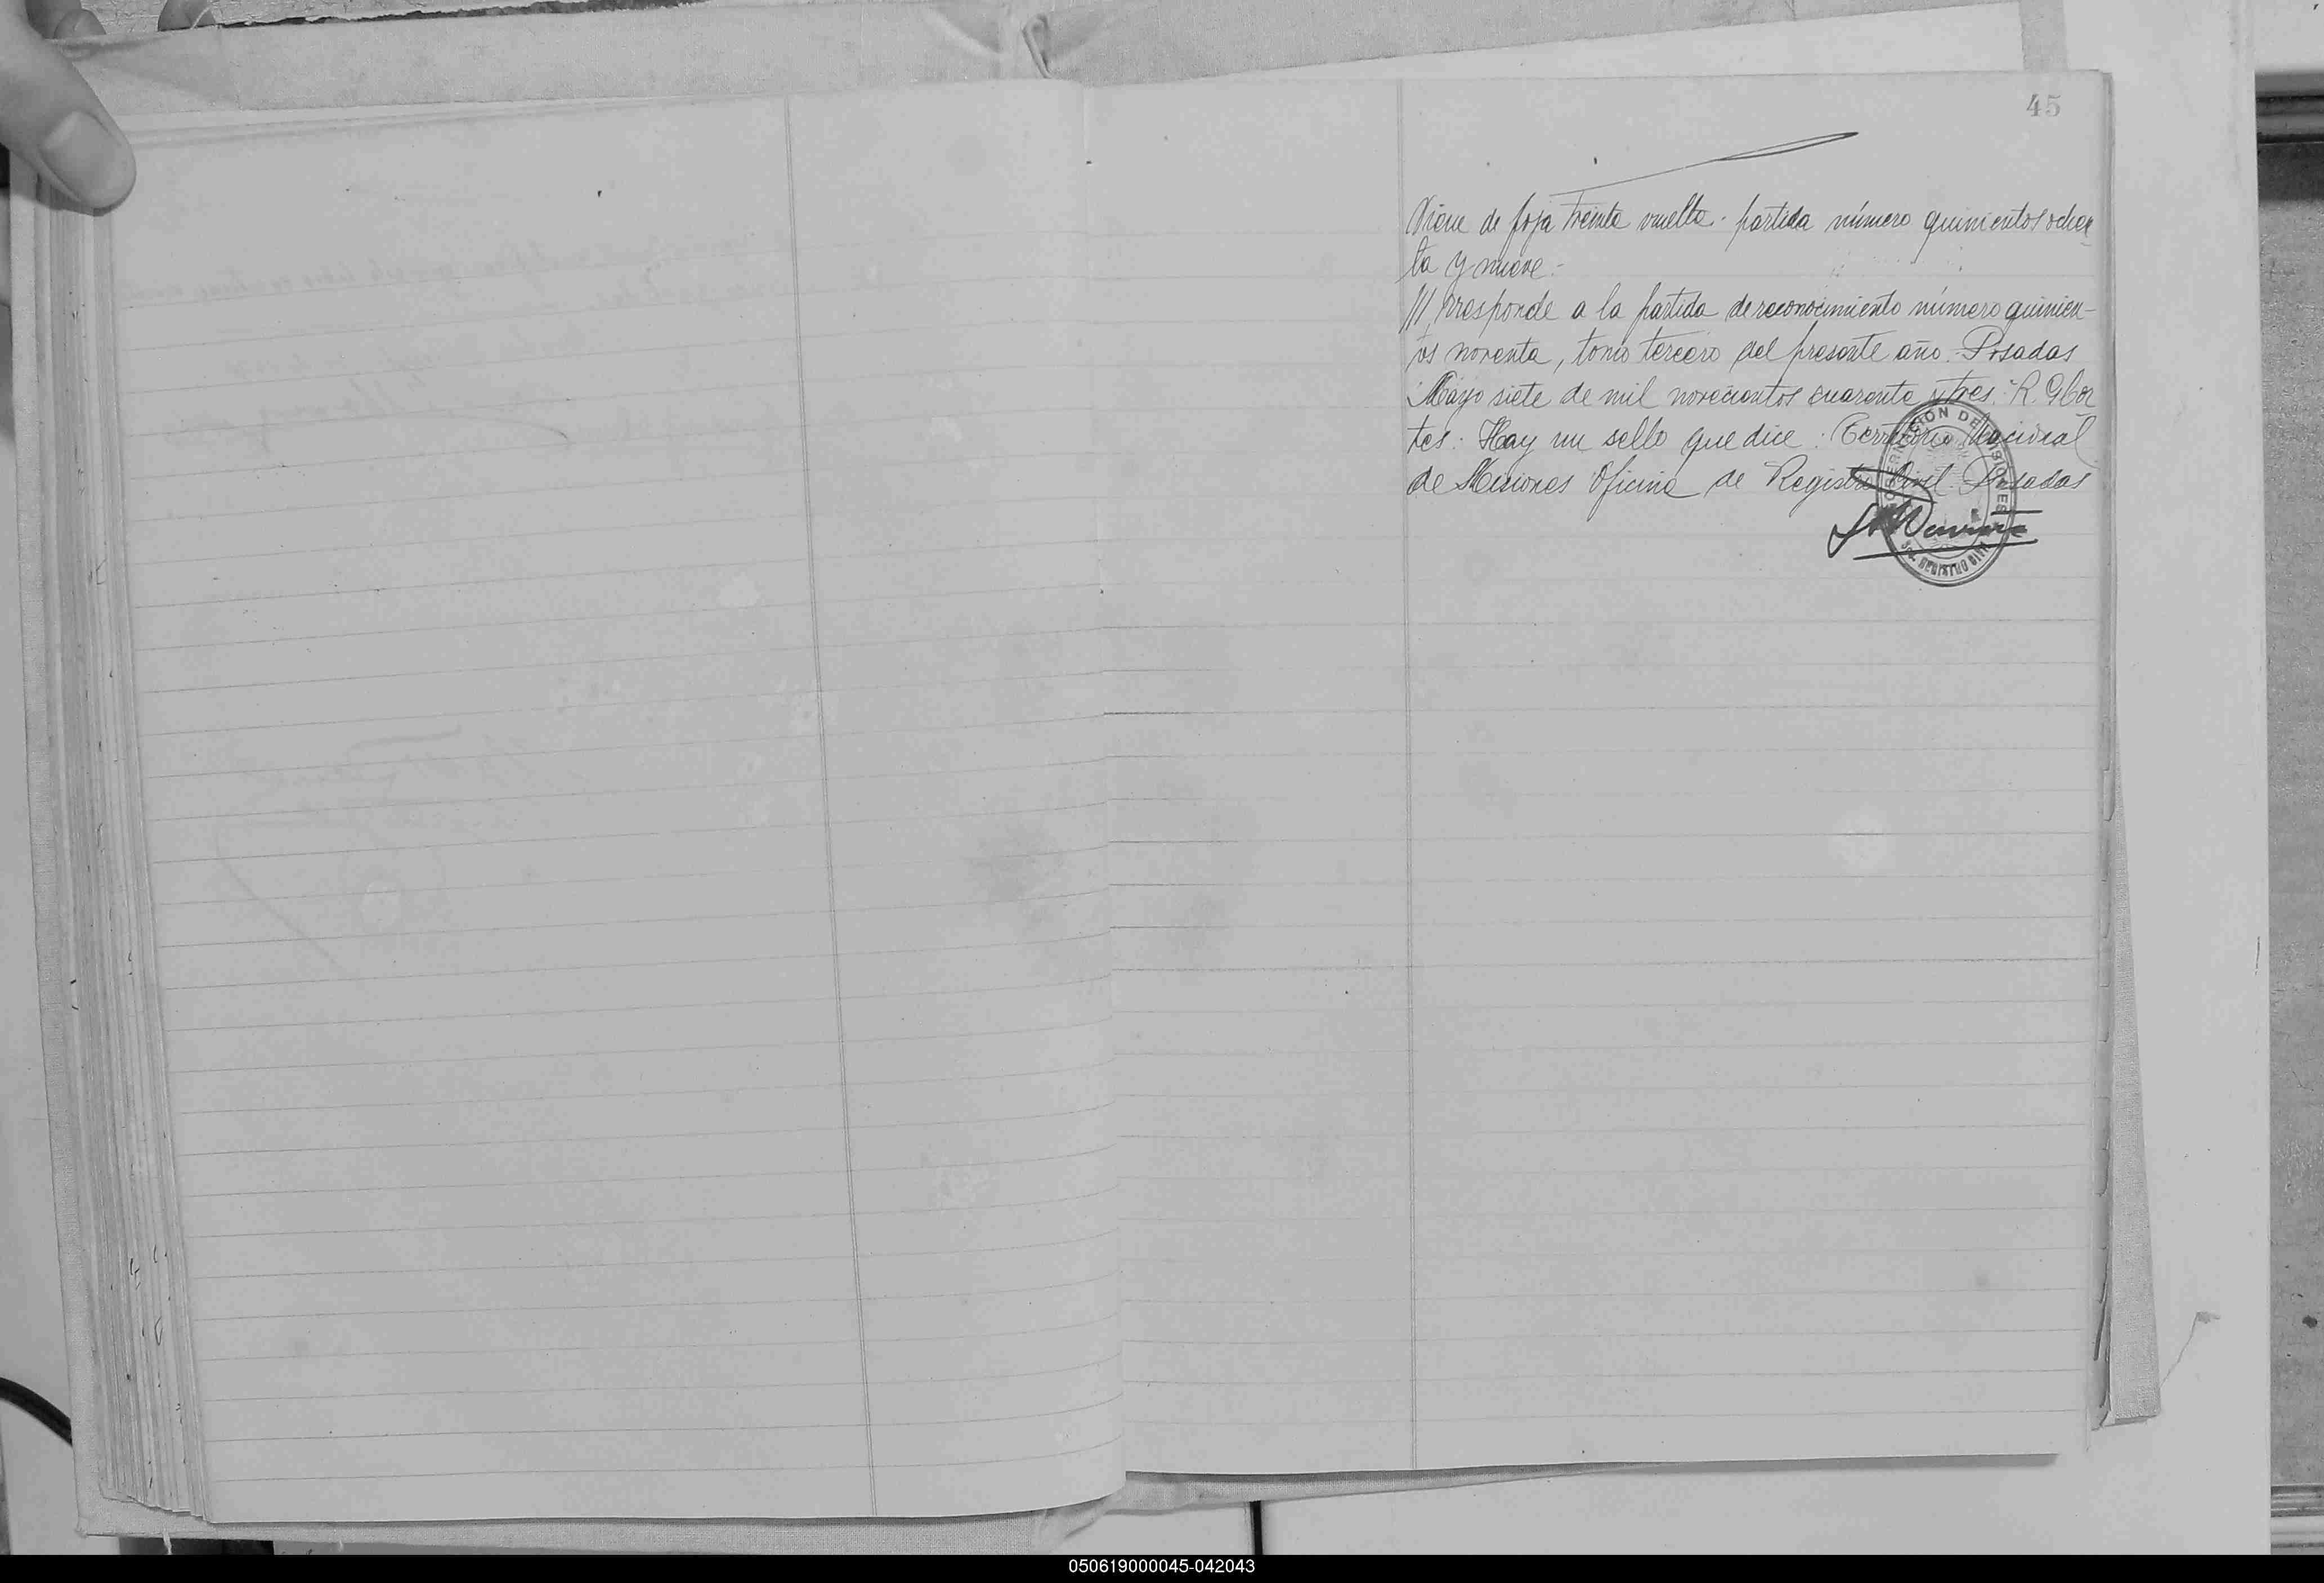 45
Viene de foja treinta vuelta - partida número quinientos ochen
ta y nueve.-
/// rresponde a la partida de reconocimiento número quinien-
tos noventa, tomo tercero del presente año.- Posadas
Mayo siete de mil novecientos cuarenta y tres. R. G. Cor
tes.- Hay un sello que dice: Territorio Nacional
de Misiones Oficina de Registro Civil - Posadas
GOBERNACIÓN DE MISIONES
REGISTRO CIVIL
050619000045-042043